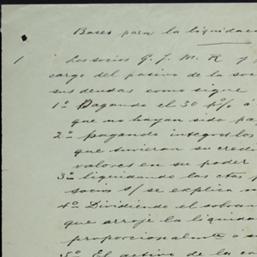 Bases para la liquidac
1 Los socios G. J. M. R y
cargo del pasivo de la soc
sus deudas como sigue
1º Pagando el 30 p% á
que no hayan sido pa
2º pagando integros los
que tuvieran su credi
valores en su poder
3º liquidando las ctas p
socios s/ se esplica m
4º Dividiendo el sobran
que arroje la liquida
proporcionalmente á s
5º El activo de la